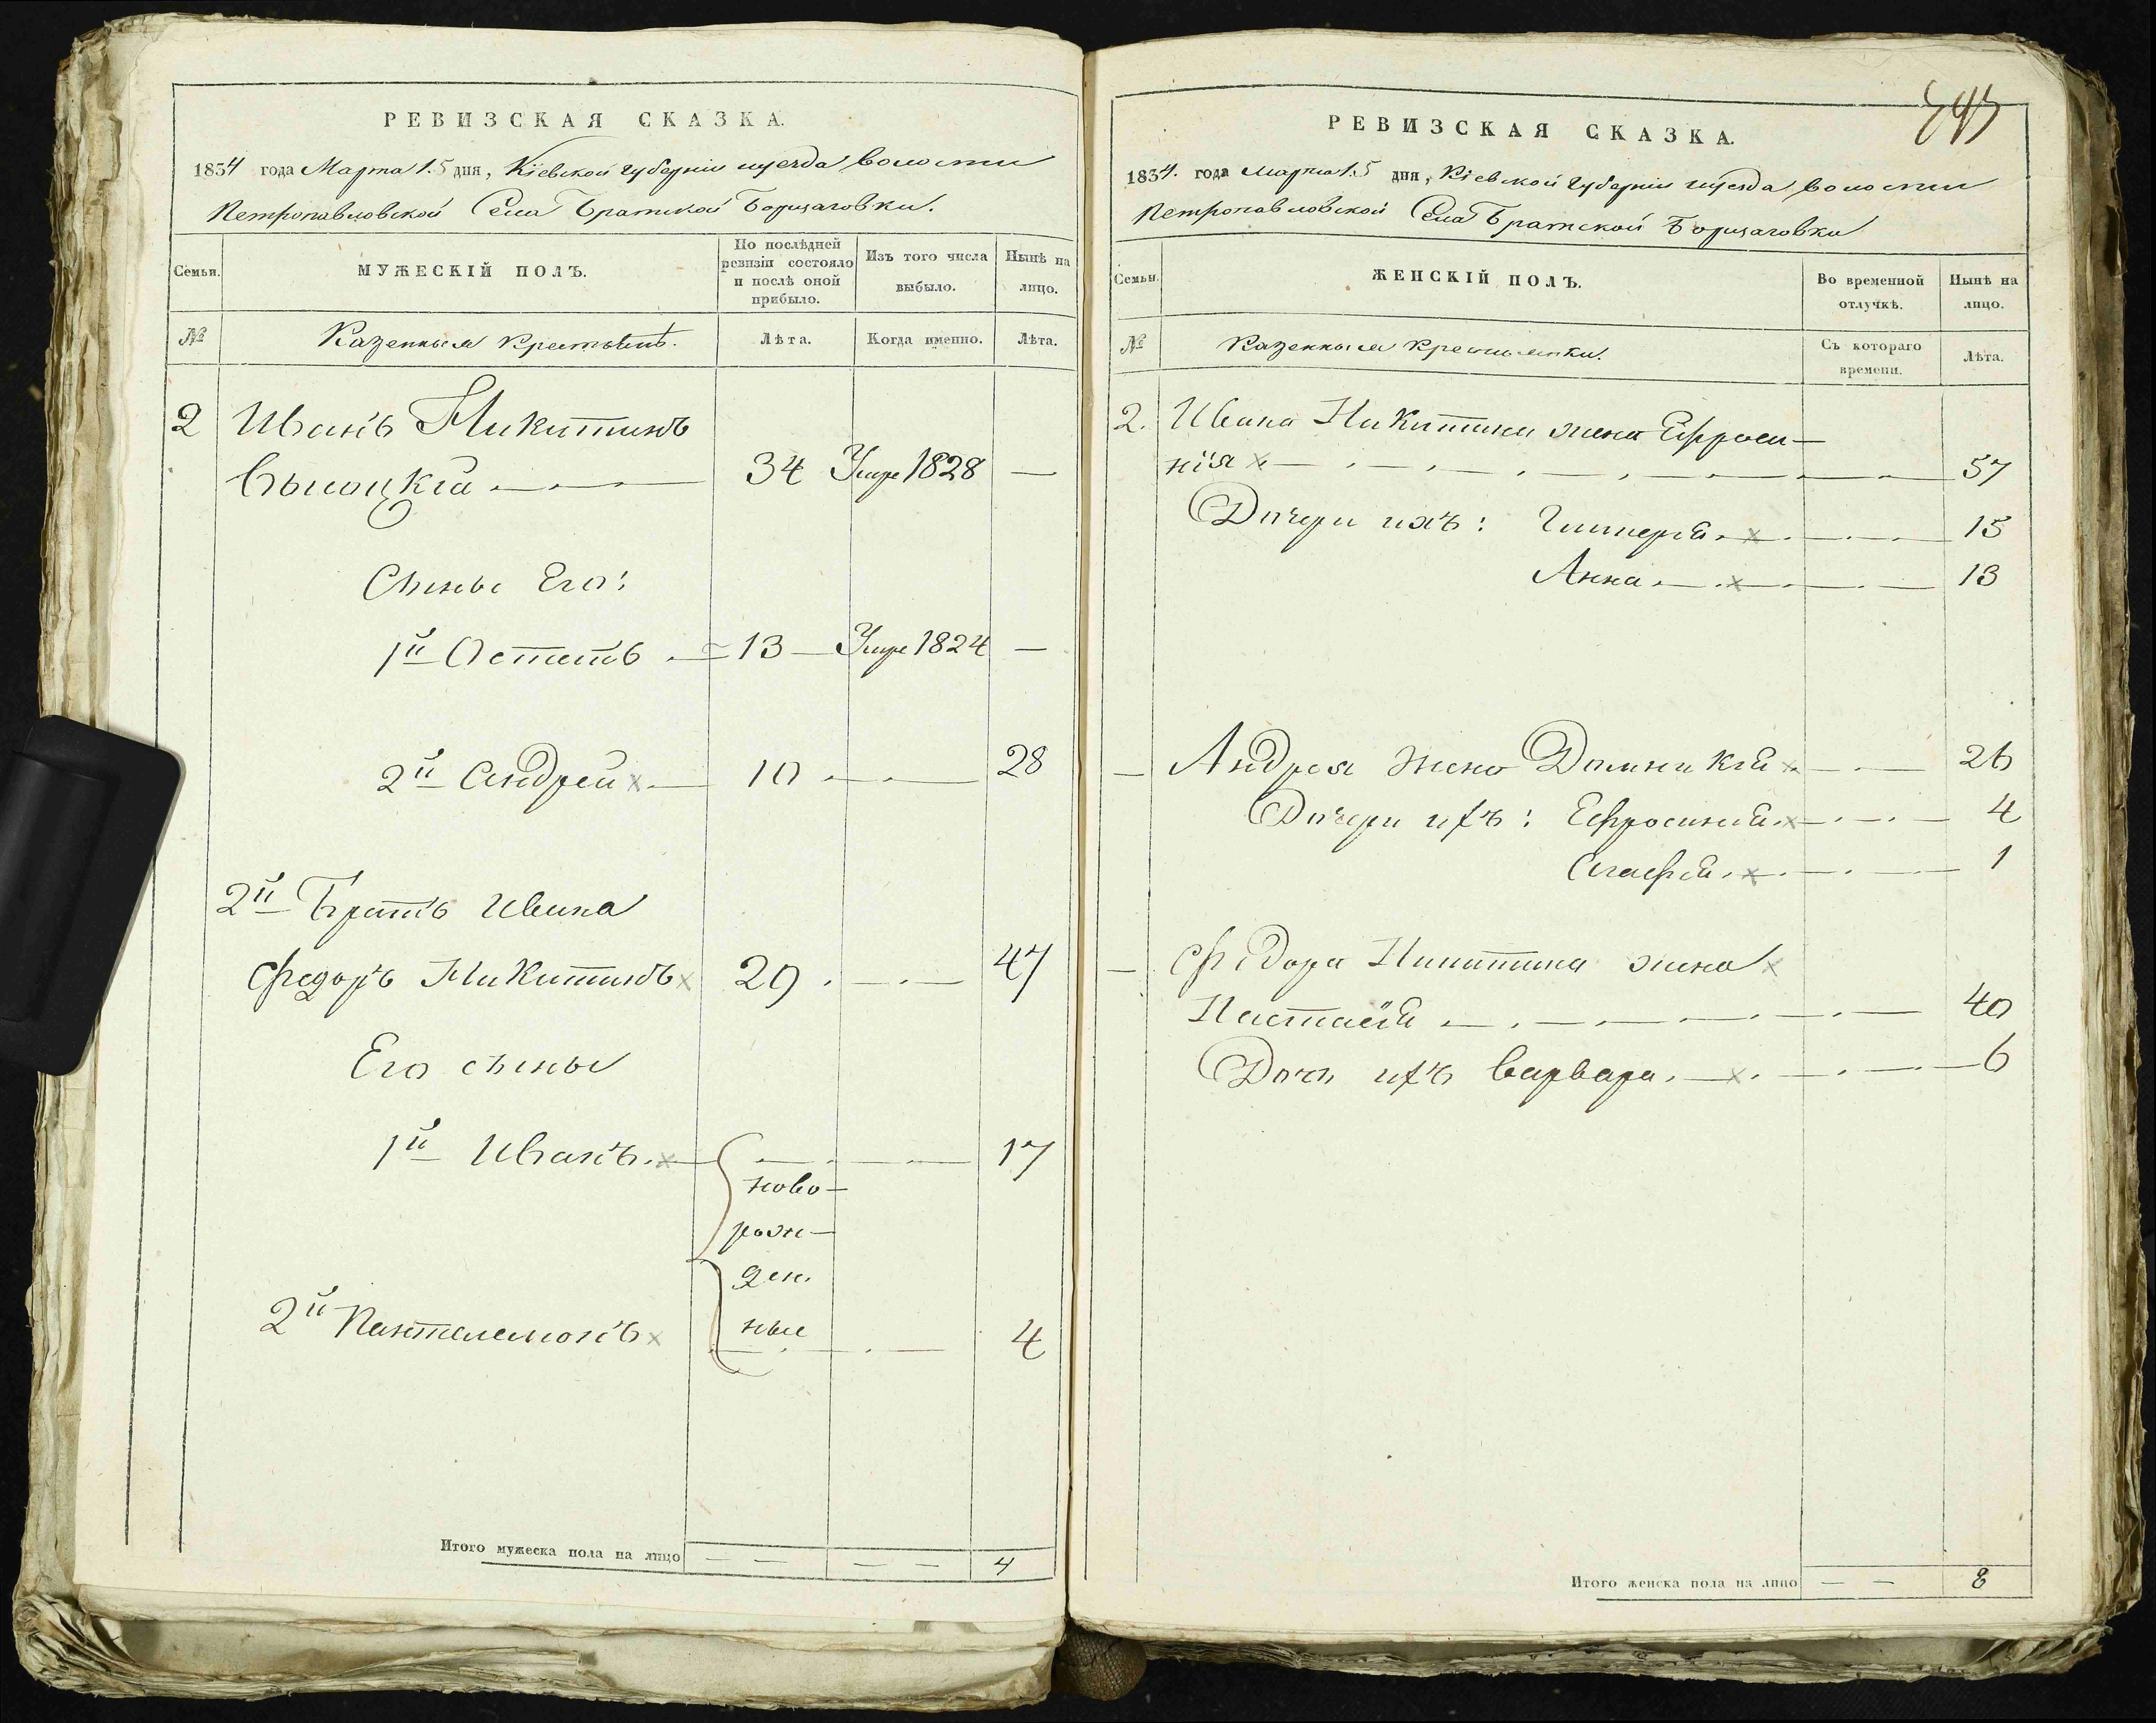 РЕВИЗСКАЯ СКАЗКА.
1834 года Марта 15 дня, Кіевской губерніи уезда волости
Петропавловской Села Братской Борщаговки.
Семьи.
МУЖЕСКІЙ ПОЛЪ.
По послѣдней ревизіи состояло и послѣ оной прибыло.
Изъ того числа выбыло.
Нынѣ на лицо.
№
Казенныя Крестьянѣ.
Лѣта.
Когда именно.
Лѣта.
2 Иванъ Никитинъ
Высоцкій 34 Умре 1828 —
Сыны Его:
1й Остапъ 13 Умре 1824 —
2й Андрей 10 28
2й Братъ Ивана
Федоръ Никитинъ 29 47
Его сыны
1й Иванъ 17
ново-
рож-
ден.
ные
2й Пантелемонъ 4
Итого мужеска пола на лицо — — — — 4
РЕВИЗСКАЯ СКАЗКА.
1834. года Марта 15 дня, Кіевской губерніи уезда волости
Петропавловской Села Братской Борщаговки
Семьи.
ЖЕНСКІЙ ПОЛЪ.
Во временной отлучкѣ.
Нынѣ на лицо.
№
Казенныя крестьянки.
Съ котораго времени.
Лѣта.
2. Ивана Никитина жена Ефроси-
нія 57
Дочери ихъ: Гликерія 15
Анна 13
— Андрея жена Домникія 26
Дочери ихъ: Ефросинія 4
Агафія 1
— Федора Никитина жена
Настасія 40
Дочь ихъ Варвара 6
Итого женска пола на лицо — — 8